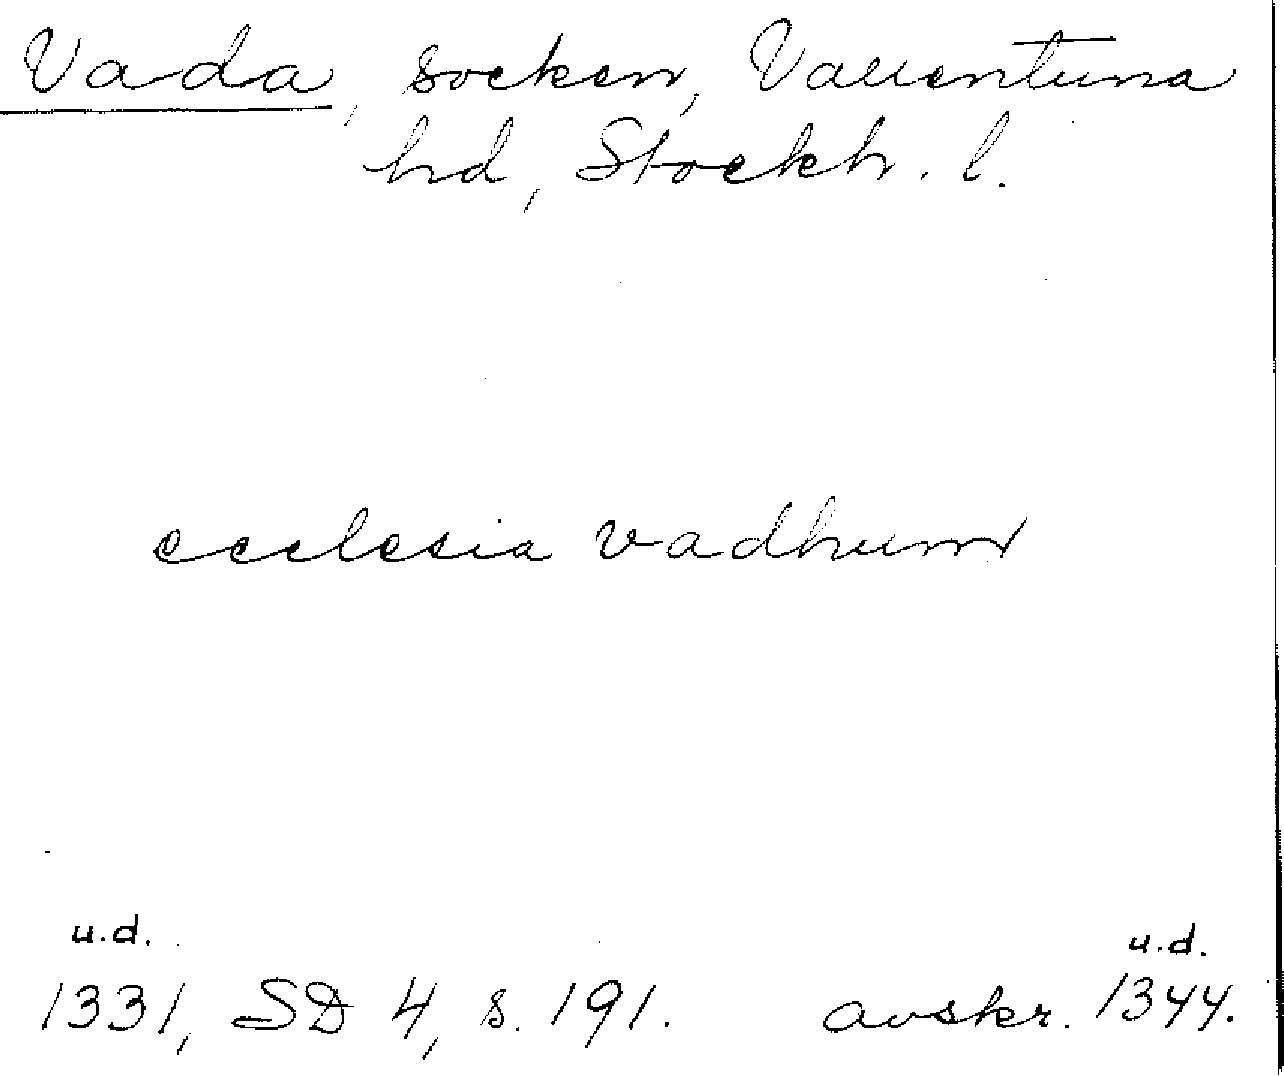 Vada, socken, Vallentuna
hd, Stockh. l.
ecclesia vadhum
u.d. u.d.
1331, SD 4, s. 191. avskr. 1344.